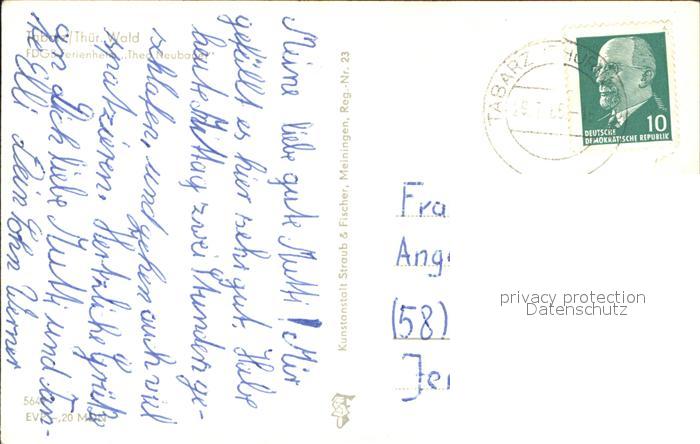 Tabarz/Thür. Wald
FDGB-Ferienheim „Theo Neubauer"
Meine liebe gute Mutti! Mir
gefällt es hier sehr gut. Habe
heute Mittag zwei Stunden ge-
schlafen, und gehen auch viel
spazieren. Herzliche Grüße
an Dich liebe Mutti und Tan-
te Elli Dein Sohn Werner
Kunstanstalt Straub & Fischer, Meiningen, Reg.-Nr. 23
TABARZ (THÜR
10
DEUTSCHE
DEMOKRATISCHE REPUBLIK
Fra
Ang
(58)
Jen
privacy protection
Datenschutz
564
EVP -,20 MDN